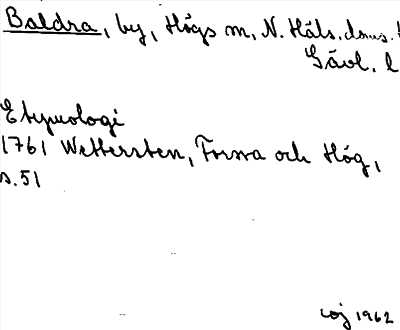 Baldra, by, Högs sn, N. Häls. doms.
Gävl. l
Etymologi
1761 Wettersten, Forssa och Hög,
s. 51
1962